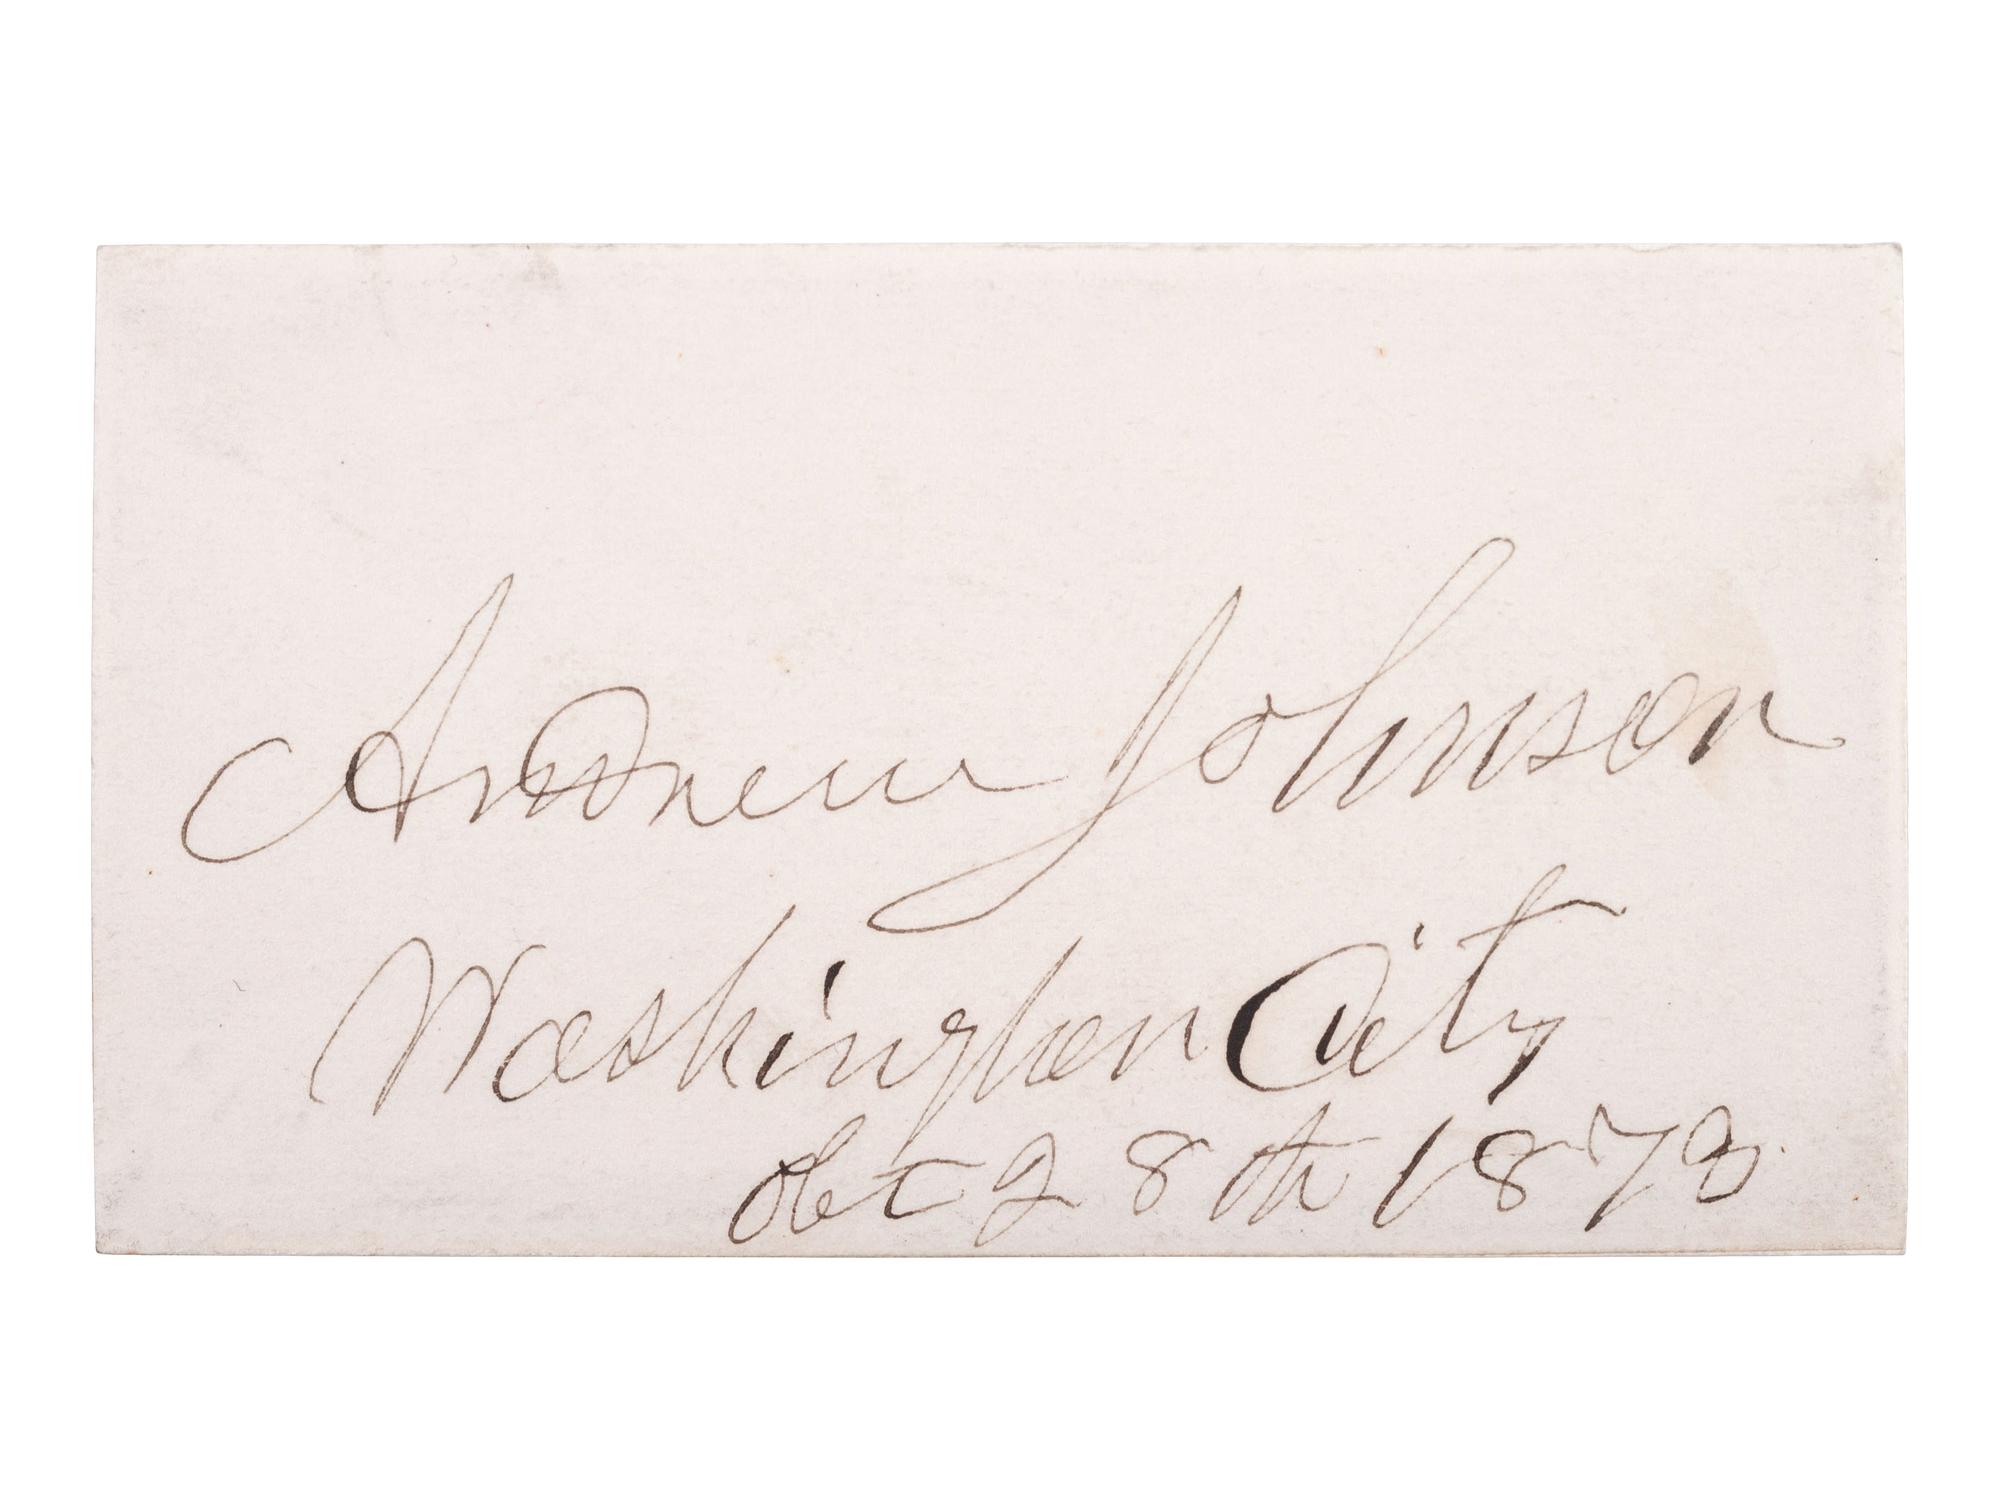 Andrew Johnson
Washington City
Oct 28th 1873